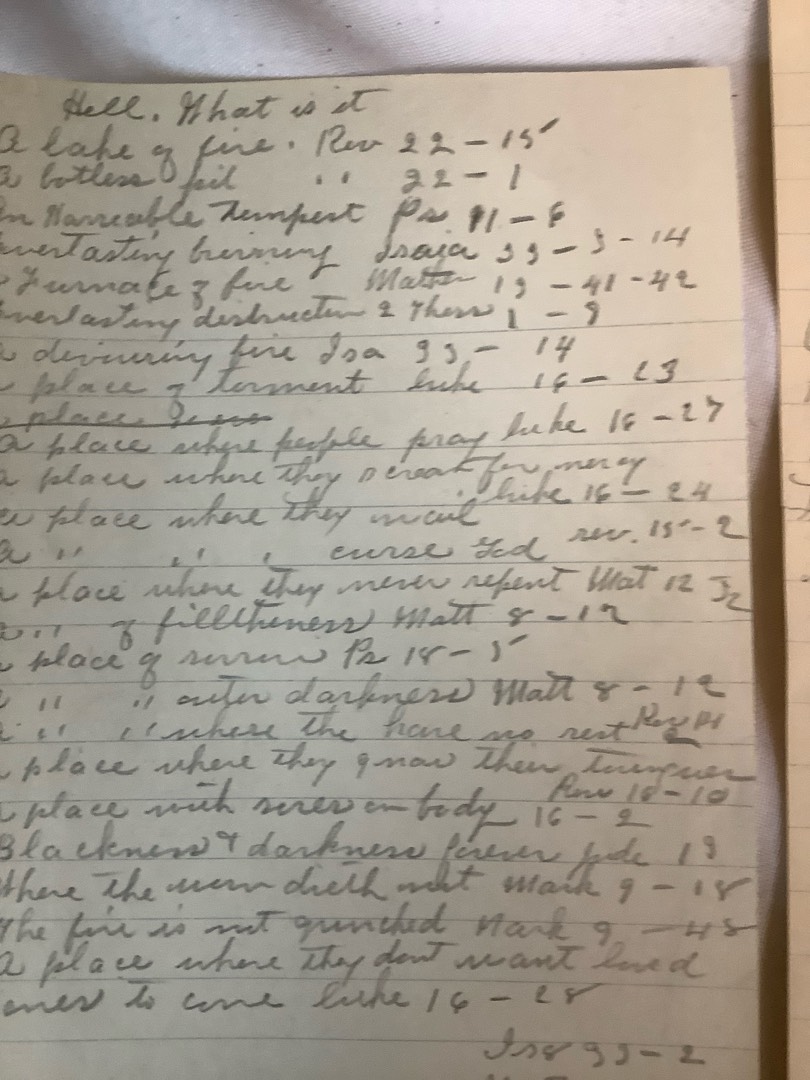 Hell. What is it
A lake of fire. Rev 22 - 15
a botless pit " 22 - 1
an Harreable Tempest Ps 11 - 6
everlasting burning Isaia 33 - 3 - 14
Furnace of fire Matt 13 - 41 - 42
everlasting distructen 2 Thess 1 - 9
a divinuring fire Isa 33 - 14
a place of torment luke 16 - 23
a place
a place where people pray luke 16 - 27
a place where they scream for mercy
luke 16 - 24
a place where they wail
a " " " curse God rev. 15 - 2
a place where they never repent Mat 12 32
a " of fillthiness Matt 8 - 12
a place of sorrow Ps 18 - 5
a " " outer darkness Matt 8 - 12
a " " where the have no rest Rev 14
a place where they gnaw their tounguer
Rev 16 - 10
a place with sores on body 16 - 2
Blackness & darkness forever jude 13
Where the worm dieth not Mark 9 - 48
The fire is not qunched Mark 9 - 48
A place where they dont want loved
ones to come luke 16 - 28
Isa 33 - 2